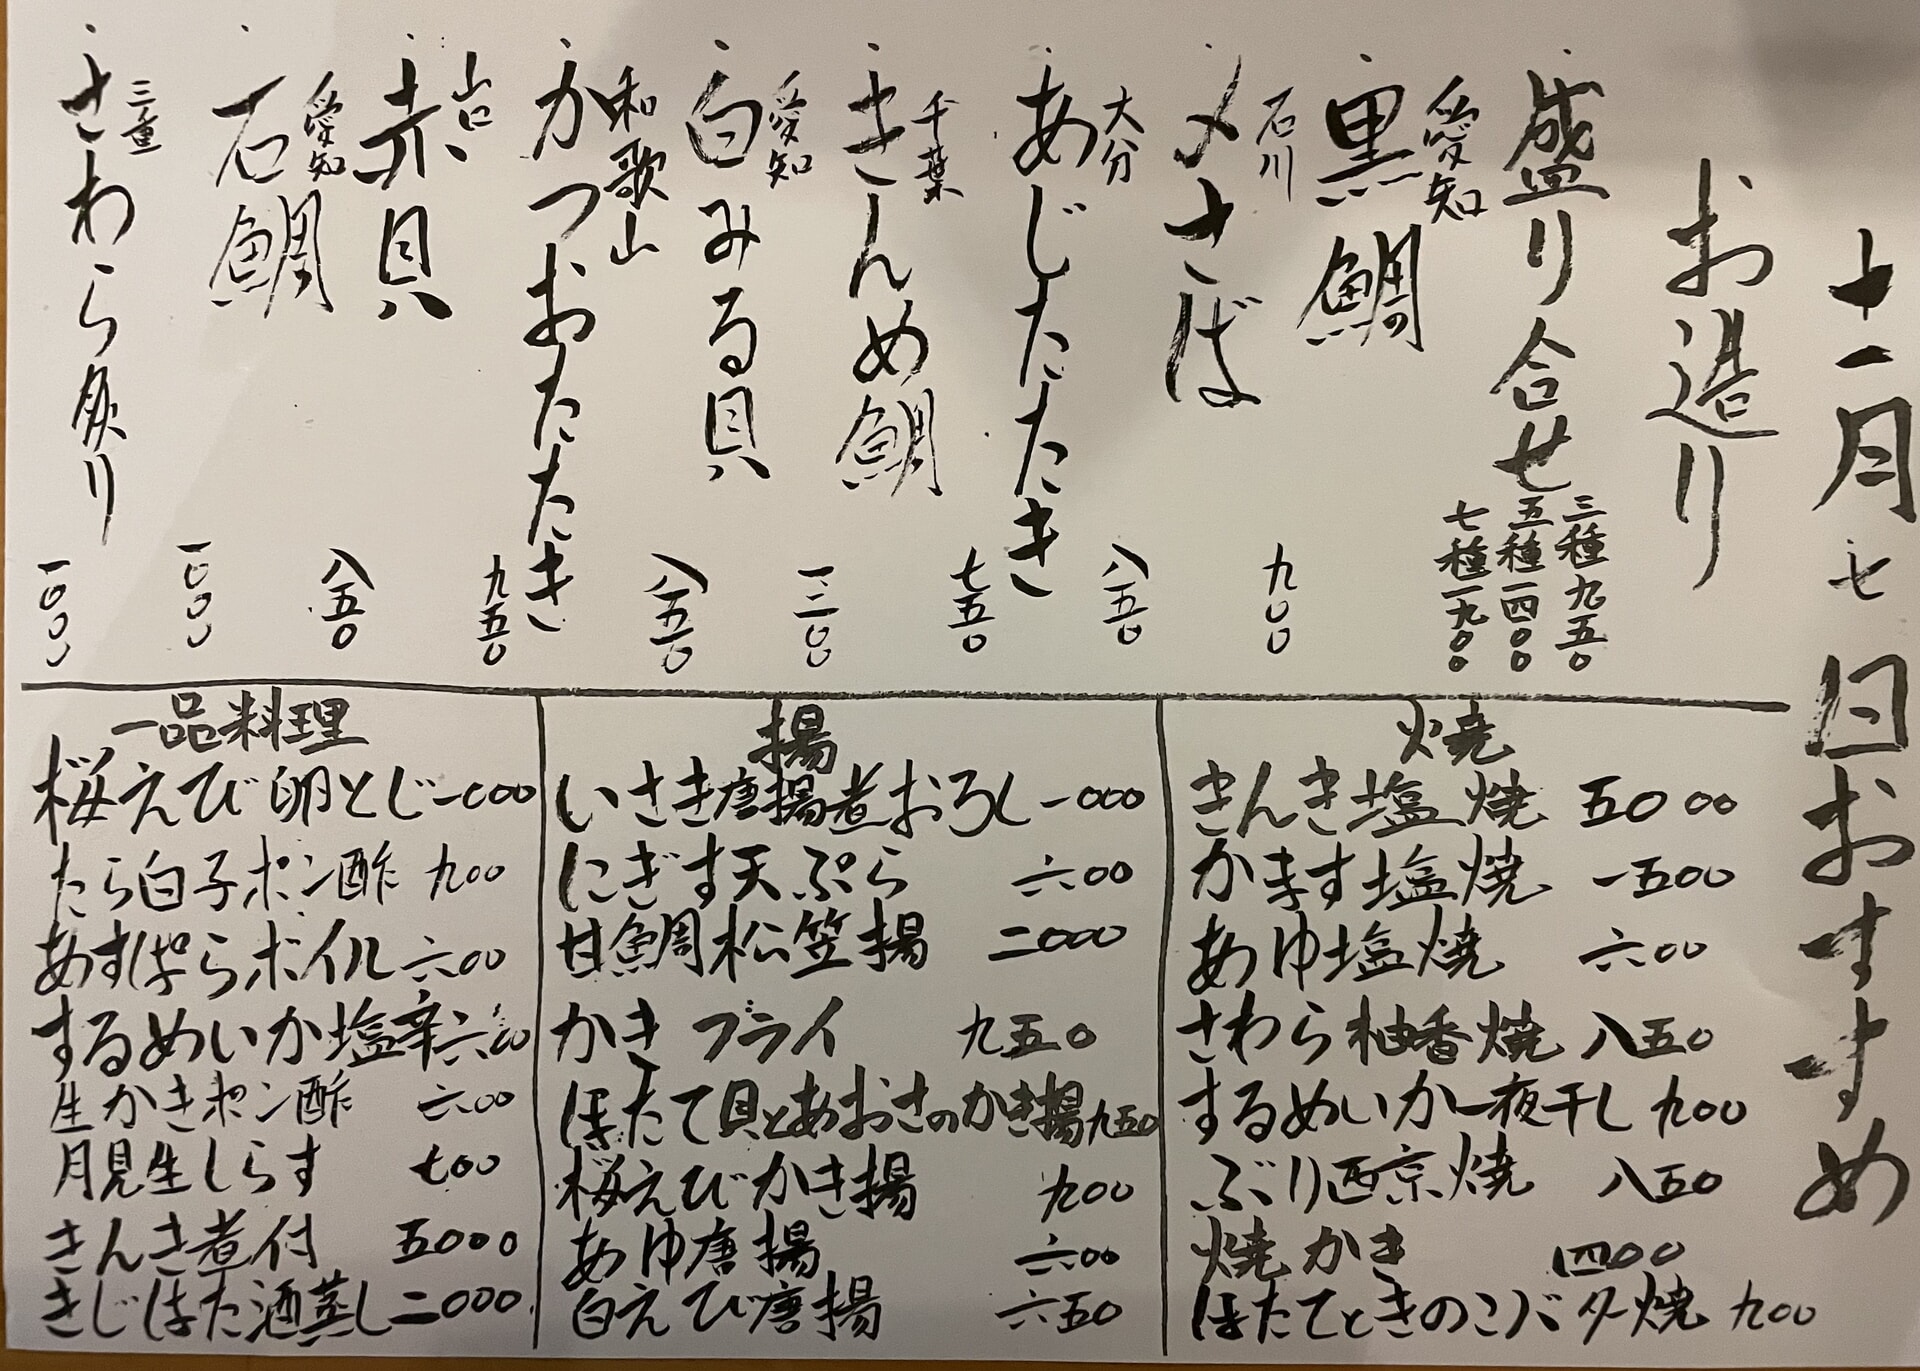 十一月七日おすすめ
お造り
盛り合せ
三種九五〇
五種一四〇〇
七種一九〇〇
愛知
黒鯛
九〇〇
石川
〆さば
八五〇
大分
あじたたき
七五〇
千葉
きんめ鯛
一二〇〇
愛知
白みる貝
八五〇
和歌山
かつおたたき
九五〇
山口
赤貝
八五〇
愛知
石鯛
一〇〇〇
三重
さわら炙り
一〇〇〇
焼
きんき塩焼 五〇〇〇
かます塩焼 一五〇〇
あゆ塩焼 六〇〇
さわら柚香焼 八五〇
するめいか一夜干し 九〇〇
ぶり西京焼 八五〇
焼かき 四〇〇
ほたてときのこバター焼 九〇〇
揚
いさき唐揚煮おろし 一〇〇〇
にぎす天ぷら 六〇〇
甘鯛松笠揚 二〇〇〇
かきフライ 九五〇
ほたて貝とあおさのかき揚 九五〇
桜えびかき揚 九〇〇
あゆ唐揚 六〇〇
白えび唐揚 六五〇
一品料理
桜えび卵とじ 一〇〇〇
たら白子ポン酢 九〇〇
あすぱらボイル 六〇〇
するめいか塩辛 六〇〇
生かきポン酢 六〇〇
月見生しらす 七〇〇
きんき煮付 五〇〇〇
きじはた酒蒸し 二〇〇〇